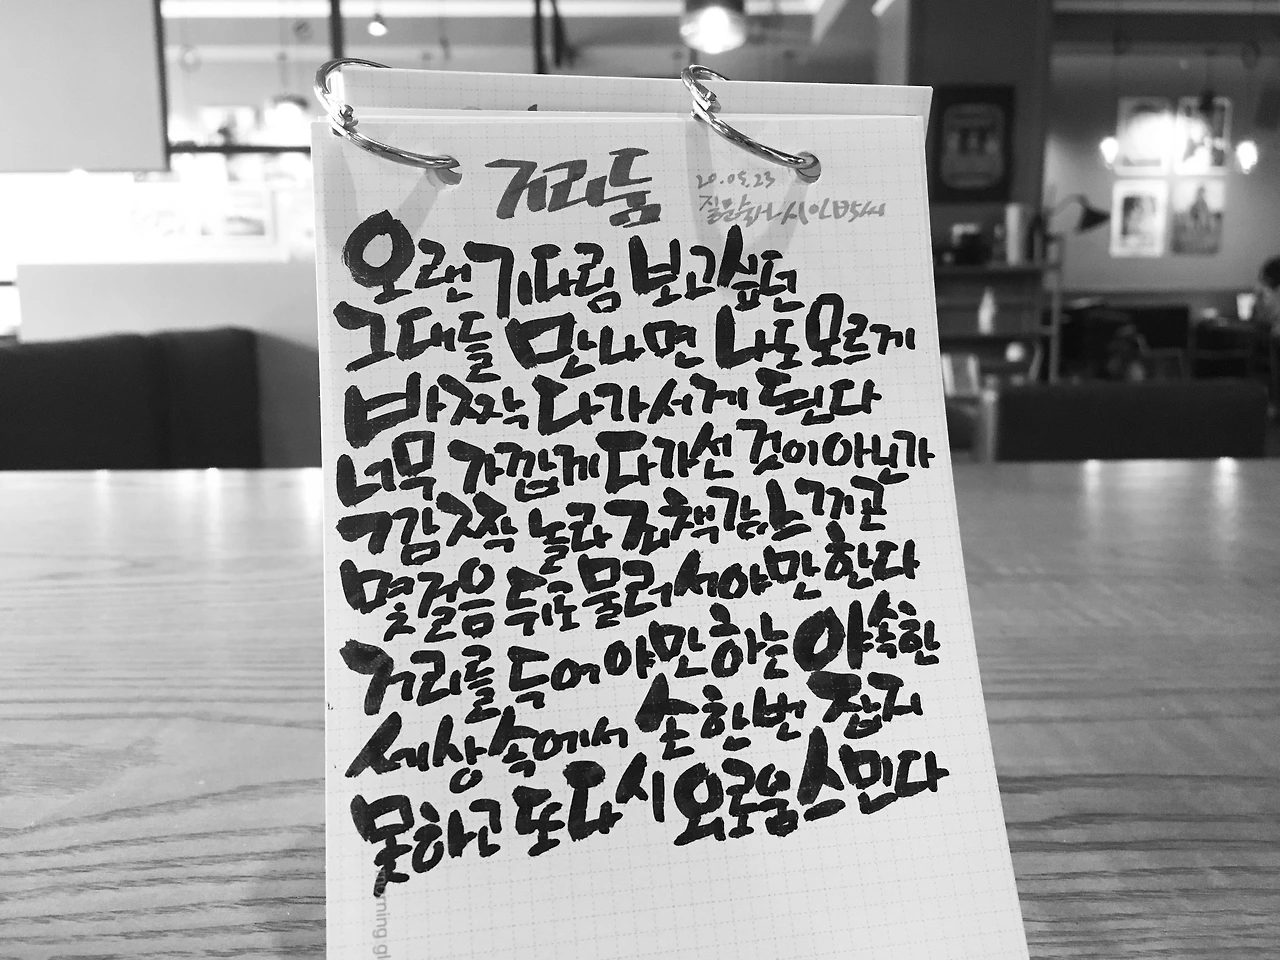 거리둠
20.05.23
오랜 기다림 보고싶던
그대들 만나면 나도 모르게
바짝 다가서게 된다
너무 가깝게 다가선 것이 아닌가
깜짝 놀라 죄책감 느끼곤
몇걸음 뒤로 물러서야만 한다
거리를 두어야만 하는 야속한
세상속에서 손 한번 잡지
못하고 또 다시 외로움 스민다